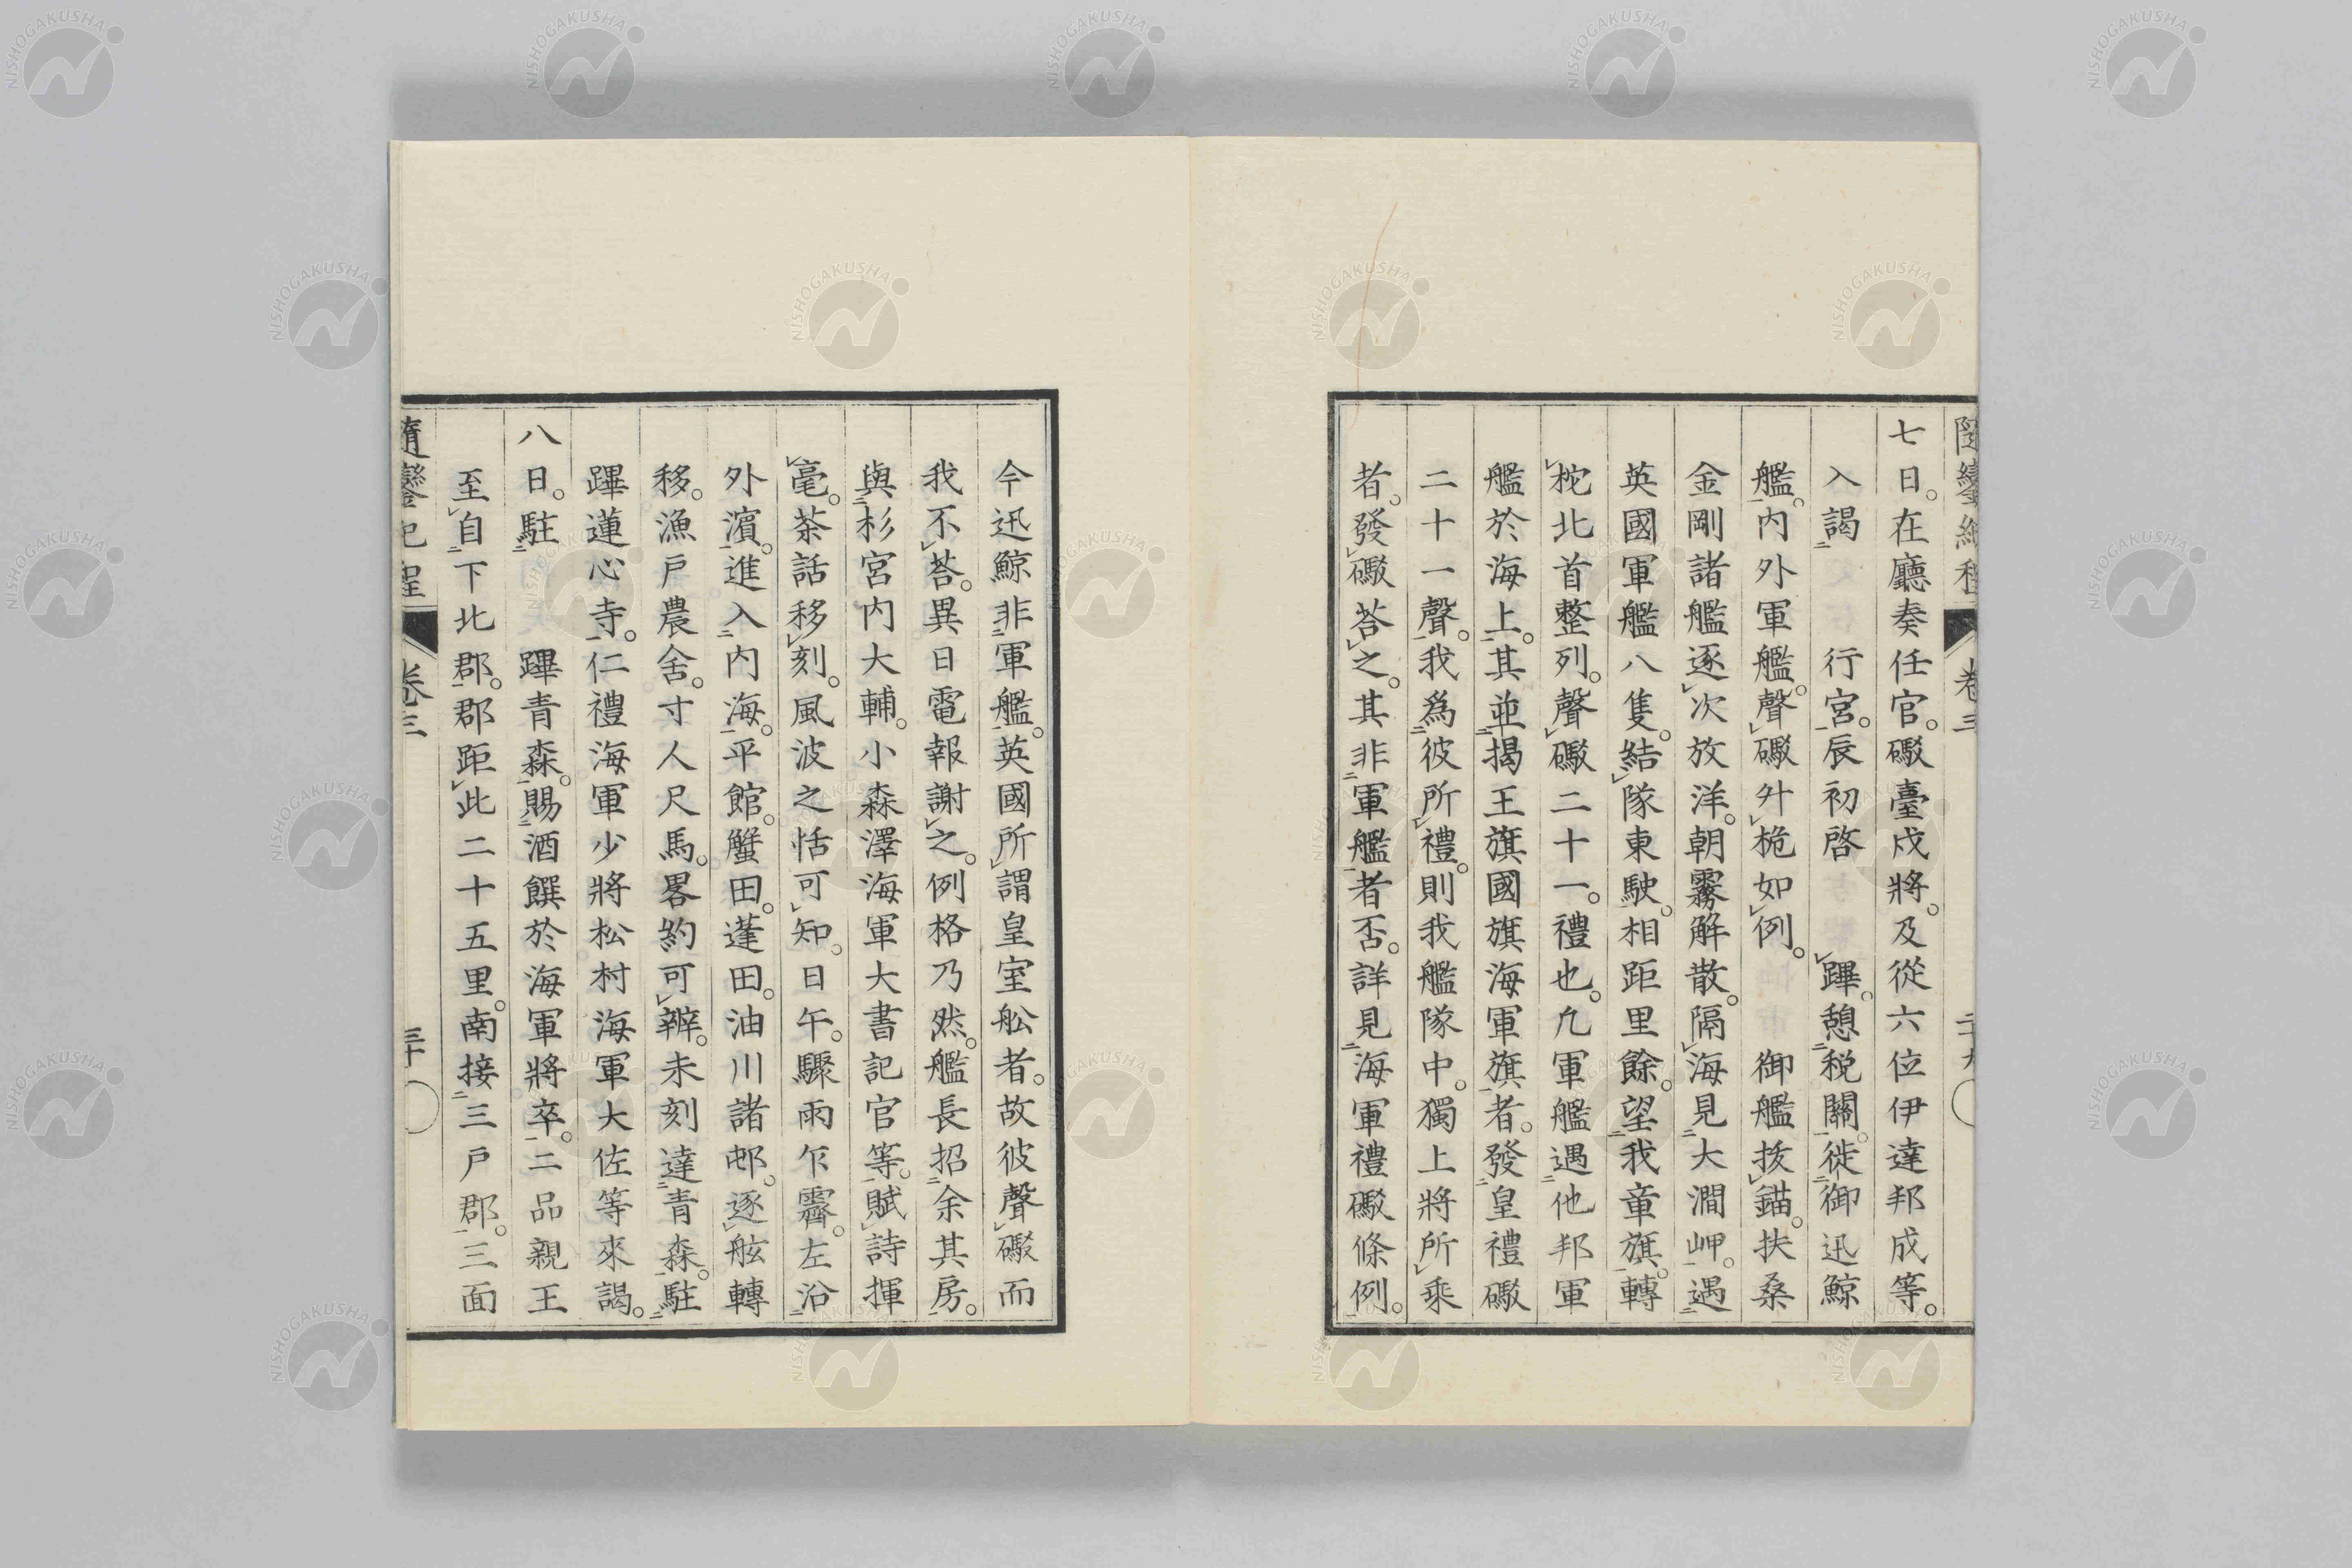 隨鑾紀程 卷三 二十九
七日。在廳奏任官。礮臺戍將。及從六位伊達邦成等。
入謁 行宮。辰初啓 蹕。憩税關。徙御迅鯨
艦。內外軍艦。聲礮升桅如例。 御艦拔錨。扶桑
金剛諸艦逐次放洋。朝霧解散。隔海見大澗岬。遇
英國軍艦八隻。結隊東駛。相距里餘。望我章旗。轉
柁北首整列。聲礮二十一。禮也。凢軍艦遇他邦軍
艦於海上。其並揭王旗國旗海軍旗者。發皇禮礮
二十一聲。我爲彼所禮。則我艦隊中。獨上將所乘
者。發礮荅之。其非軍艦者否。詳見海軍禮礮條例。
今迅鯨非軍艦。英國所謂皇室舩者。故彼聲礮而
我不荅。異日電報謝之。例格乃然。艦長招余其房。
與杉宮內大輔。小森澤海軍大書記官等。賦詩揮
毫。茶話移刻。風波之恬可知。日午。驟雨乍霽。左沿
外濱。進入內海。平館。蟹田。蓬田。油川諸邨。逐舷轉
移。漁戶農舍。寸人尺馬。畧約可辨。未刻達青森。駐
蹕蓮心寺。仁禮海軍少將松村海軍大佐等來謁。
八日。駐 蹕青森。賜酒饌於海軍將卒。二品親王
至自下北郡。郡距此二十五里。南接三戶郡。三面
隨鑾紀程 卷三 三十
NISHOGAKUSHA